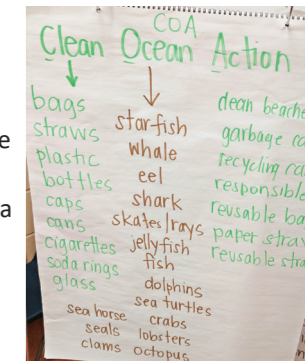 COA
Clean Ocean Action
bags
straws
plastic
bottles
caps
cans
cigarettes
soda rings
glass
starfish
whale
eel
shark
skates/rays
jellyfish
fish
dolphins
sea turtles
sea horse crabs
seals lobsters
clams octopus
clean
garbage
recycling
responsible
reusable
paper
reusable